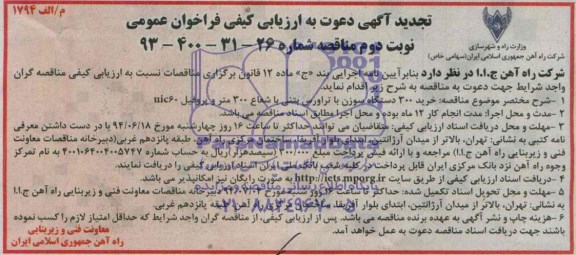 م/الف ۱۷۹۴
وزارت راه و شهرسازی
شرکت راه آهن جمهوری اسلامی ایران(سهامی خاص)
تجدید آگهی دعوت به ارزیابی کیفی فراخوان عمومی
نوبت دوم مناقصه شماره ۲۶-۳۱-۴۰۰-۹۳
شرکت راه آهن ج.ا.ا در نظر دارد بنابر آیین نامه اجرایی بند «ج» ماده ۱۲ قانون برگزاری مناقصات نسبت به ارزیابی کیفی مناقصه گران
واجد شرایط جهت دعوت به مناقصه به شرح زیر اقدام نماید.
۱- شرح مختصر موضوع مناقصه: خرید ۳۰۰ دستگاه سوزن با تراورس بتنی با شعاع ۳۰۰ متر و پروفیل uic60
۲- مدت و محل اجرا: مدت انجام کار ۱۲ ماه بوده و محل اجرا مطابق اسناد مناقصه می باشد.
۳- مهلت و محل دریافت اسناد ارزیابی کیفی: متقاضیان می توانند حداکثر تا ساعت ۱۶ روز چهارشنبه مورخ ۹۴/۰۶/۱۸ با در دست داشتن معرفی
نامه کتبی به نشانی: تهران، بالاتر از میدان آرژانتین، ابتدای بلوار آفریقا، ساختمان مرکزی راه آهن، طبقه پانزدهم غربی(دبیرخانه مناقصات معاونت
فنی و زیربنایی راه آهن ج.ا.ا) مراجعه و با ارائه فیش پرداختی به مبلغ (سیصدهزار)ریال به حساب شماره به نام تمرکز
وجوه راه آهن نزد بانک مرکزی ایران قابل پرداخت در کلیه شعب بانک ملی ایران اسناد ارزیابی کیفی را دریافت نمایند.
۴- دریافت اسناد ارزیابی کیفی از طریق سایت http://iets.mporg.ir به صورت رایگان نیز امکانپذیر می باشد.
۵- مهلت و محل تحویل اسناد تکمیل شده: حداکثر تا ساعت روز شنبه مورخ دبیرخانه مناقصات معاونت فنی و زیربنایی راه آهن ج.ا.ا
به نشانی: تهران، بالاتر از میدان آرژانتین، ابتدای بلوار آفریقا، ساختمان مرکزی راه آهن، طبقه پانزدهم غربی.
۶- هزینه چاپ و نشر آگهی به عهده برنده مناقصه می باشد. پس از ارزیابی کیفی، از مناقصه گران واجد شرایط که حداقل امتیاز لازم را کسب نموده
باشند جهت دریافت اسناد مناقصه دعوت به عمل خواهد آمد.
معاونت فنی و زیربنایی
راه آهن جمهوری اسلامی ایران